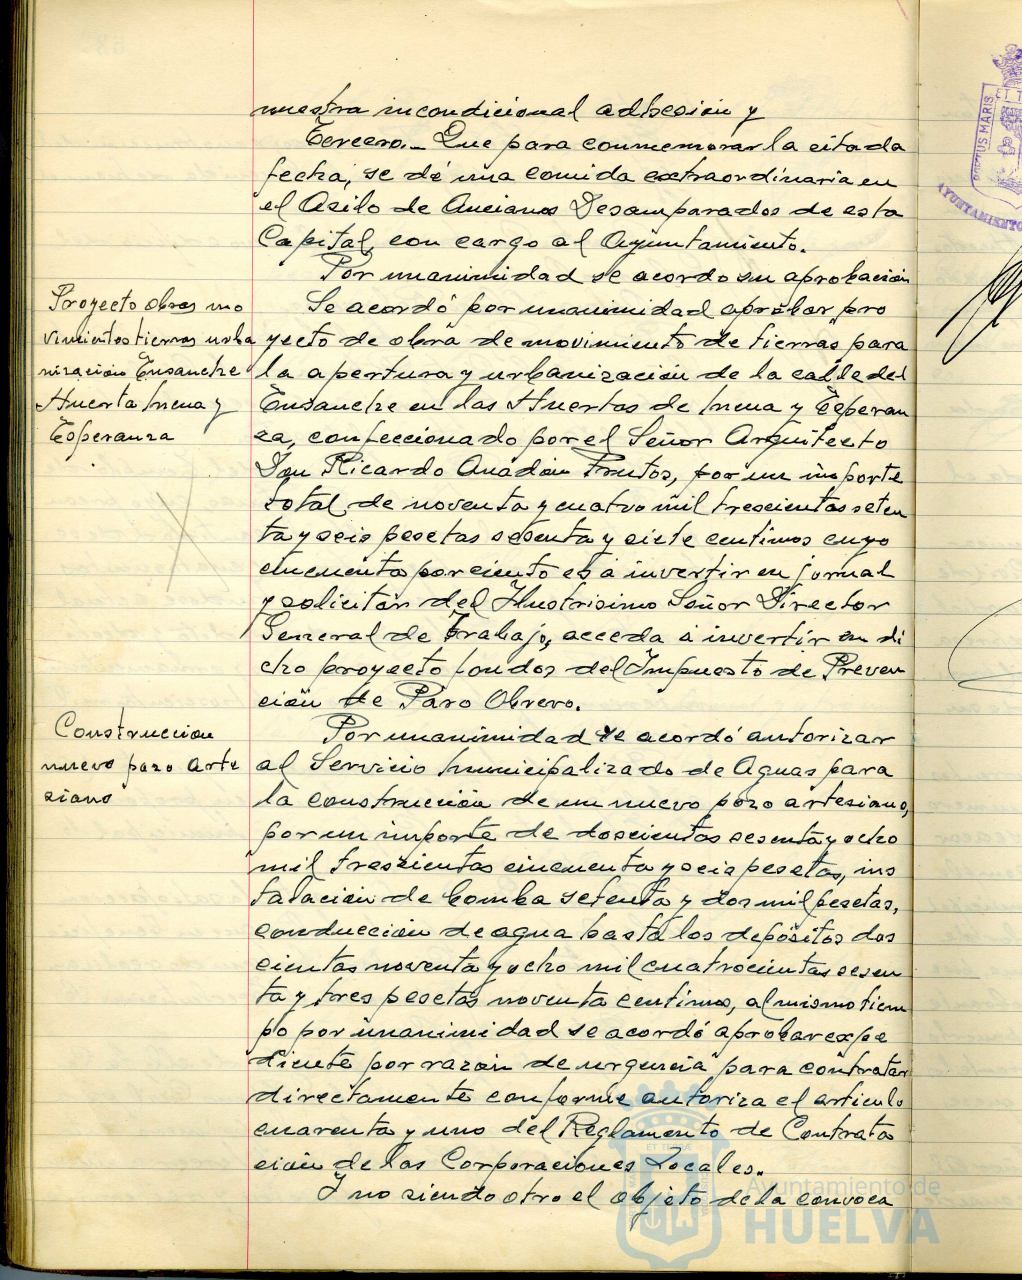 nuestra incondicional adhesión y
Tercero.- Que para conmemorar la citada
fecha, se dé una comida extraordinaria en
el Asilo de Ancianos Desamparados de esta
Capital, con cargo al Ayuntamiento.
Por unanimidad se acordo su aprobación
Proyecto obras mo
vimientos tierras urba
nización Ensanche
Huerta Mena y
Esperanza
Se acordó por unanimidad aprobar pro
yecto de obra de movimiento de tierras para
la apertura y urbanización de la calle del
Ensanche en las Huertas de Mena y Esperan
za, confeccionado por el Señor Arquitecto
Don Ricardo Anadón Frutos, por un importe
total de noventa y cuatro mil trescientas seten
ta y seis pesetas sesenta y siete centimos cuyo
cincuenta por ciento es a invertir en jornal
y solicitar del Ilustrisimo Señor Director
General de Trabajo, acceda a invertir en di
cho proyecto fondos del Impuesto de Preven
ción de Paro Obrero.
Construccion
nuevo pozo arte
siano
Por unanimidad se acordó autorizar
al Servicio Municipalizado de Aguas para
la construcción de un nuevo pozo artesiano,
por un importe de doscientas sesenta y ocho
mil trescientas cincuenta y seis pesetas, ins
talación de bomba setenta y dos mil pesetas,
conducción de agua hasta los depósitos dos
cientas noventa y ocho mil cuatrocientas sesen
ta y tres pesetas noventa centimos, al mismo tiem
po por unanimidad se acordó aprobar expe
diente por razón de urgencia para contratar
directamente conforme autoriza el articulo
cuarenta y uno del Reglamento de Contrata
ción de las Corporaciones Locales.
Y no siendo otro el objeto de la convoca
Ayuntamiento de
HUELVA